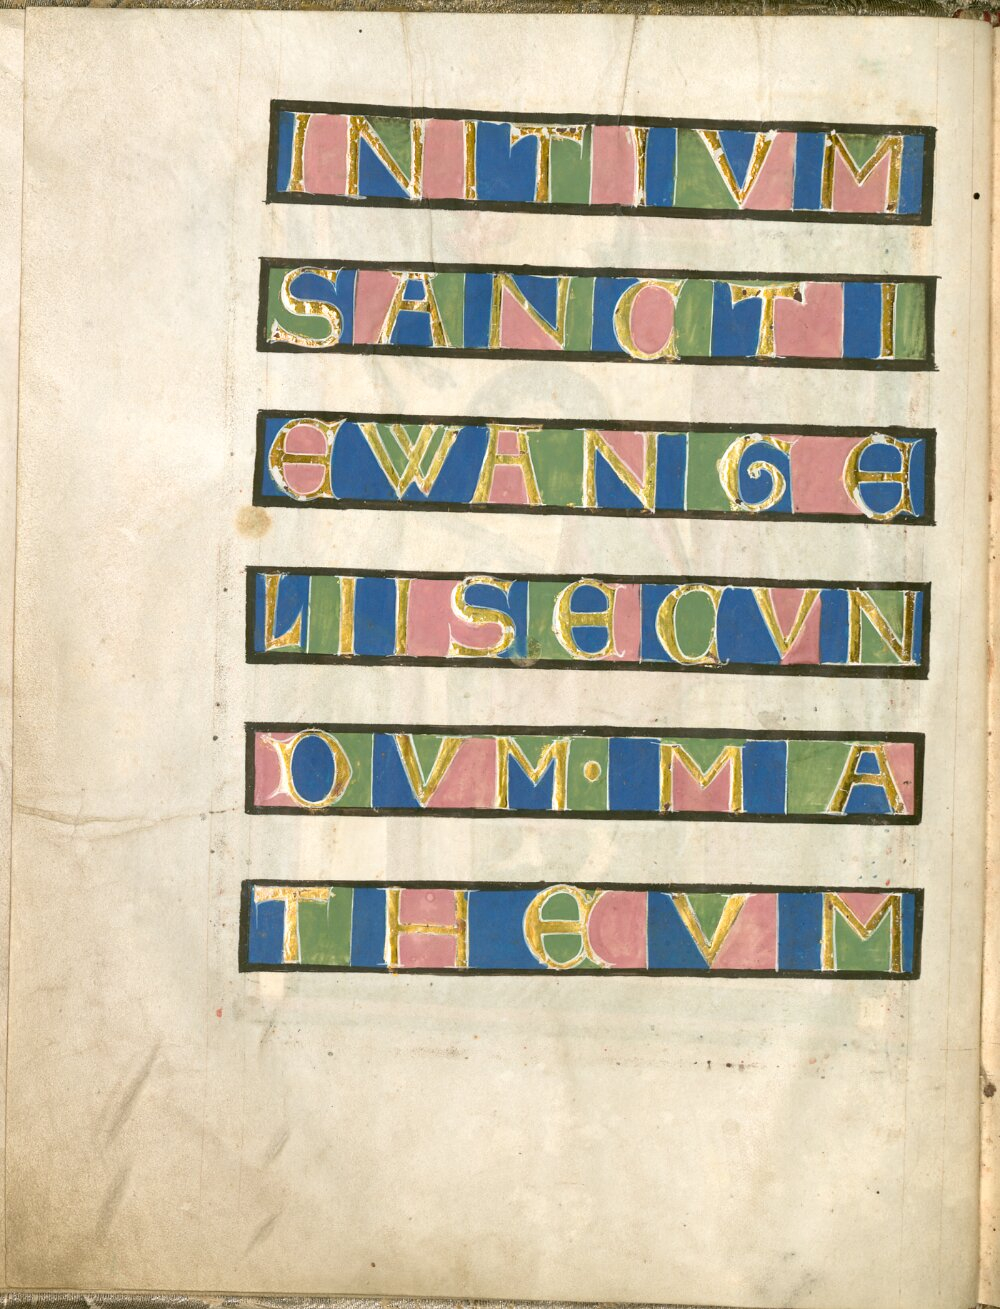 INITIVM
SANCTI
EWANGE
LIISECVN
DVM·MA
THEVM